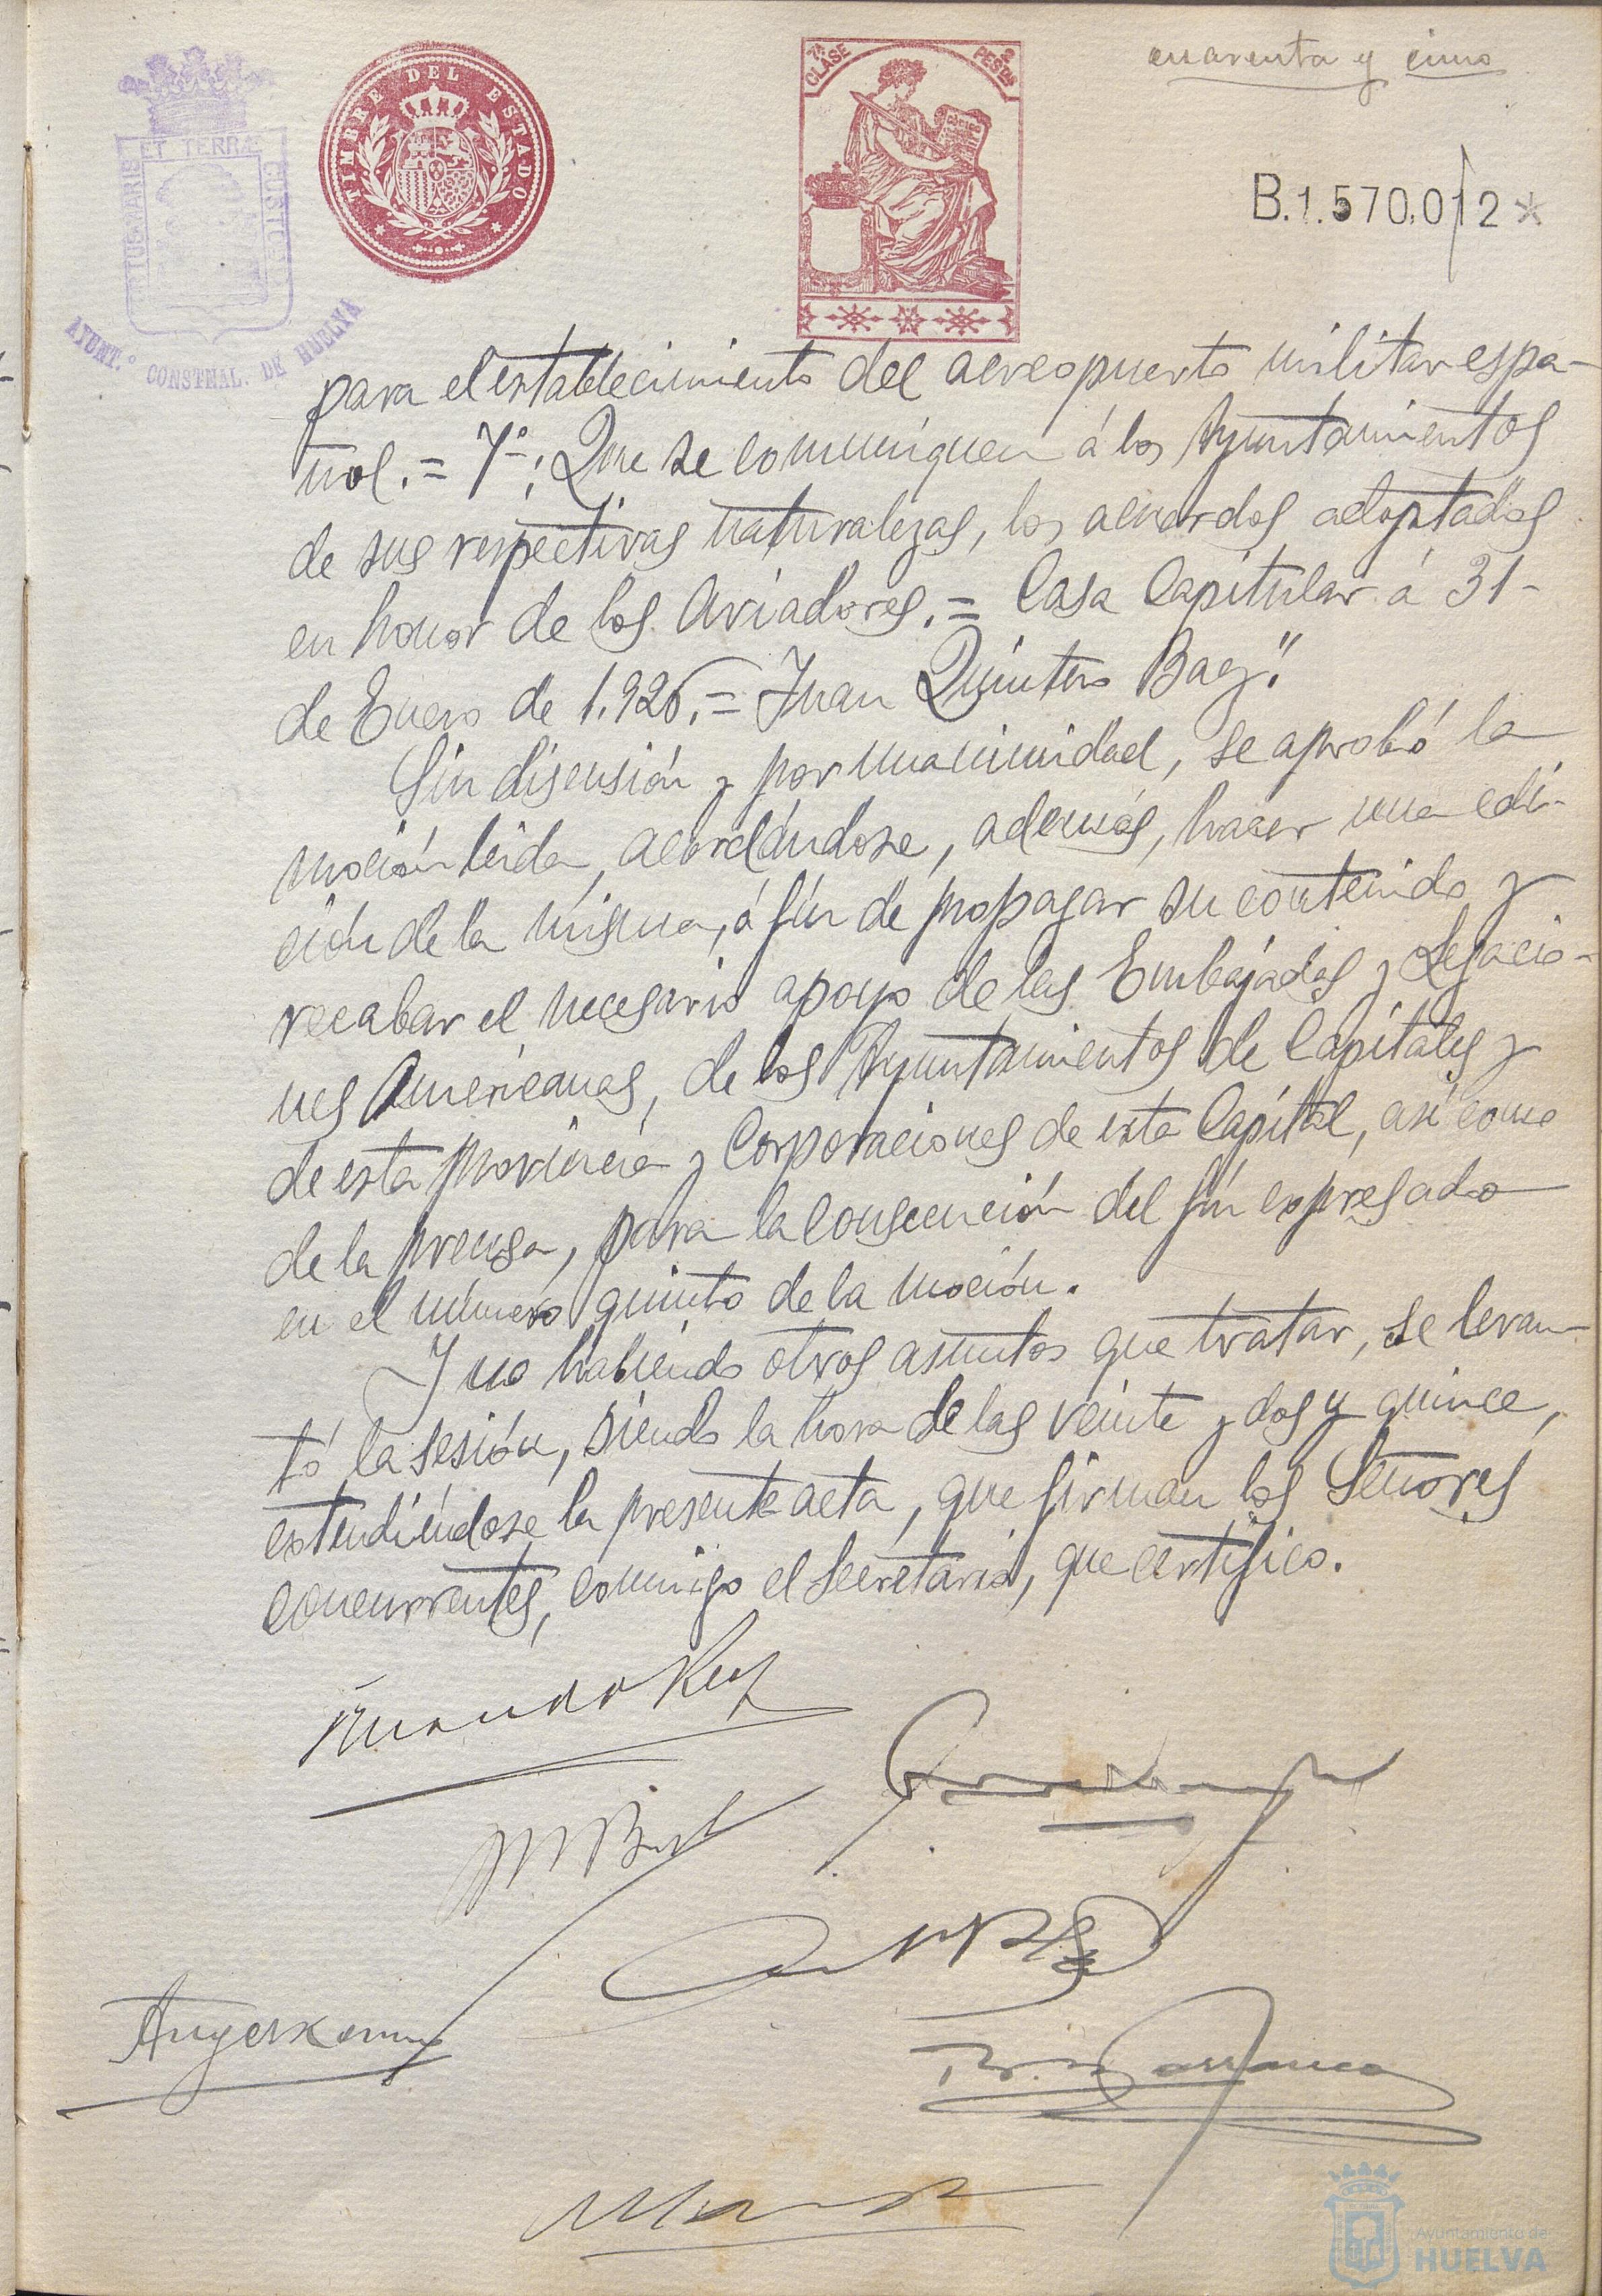 cuarenta y cinco
7ª CLASE
PESETAS
TIMBRE DEL ESTADO
PORTUS MARIS ET TERRÆ CUSTODIA
AYUNT.º CONSTNAL. DE HUELVA
B.1.570.012*
para el establecimiento del aereopuerto militar espa-
ñol.= 7º; Que se comuniquen á los Ayuntamientos
de sus respectivas naturalezas, los acuerdos adoptados
en honor de los Aviadores.= Casa Capitular á 31-
de Enero de 1.926.= Juan Quintero Baez."
Sin discusión y por unanimidad, se aprobó la
moción leida, acordándose, además, hacer una edi-
ción de la misma, á fin de propagar su contenido y
recabar el necesario apoyo de las Embajadas y Legacio-
nes Américanas, de los Ayuntamientos de Capitales y
de esta provincia y Corporaciones de esta Capital, así como
de la prensa, para la consecución del fin expresado
en el número quinto de la moción.
Y no habiendo otros asuntos que tratar, se levan-
tó la sesión, siendo la hora de las veinte y dos y quince,
extendiéndose la presente acta, que firman los Señores
concurrentes, conmigo el Secretario, que certifico.
Ayuntamiento de
HUELVA